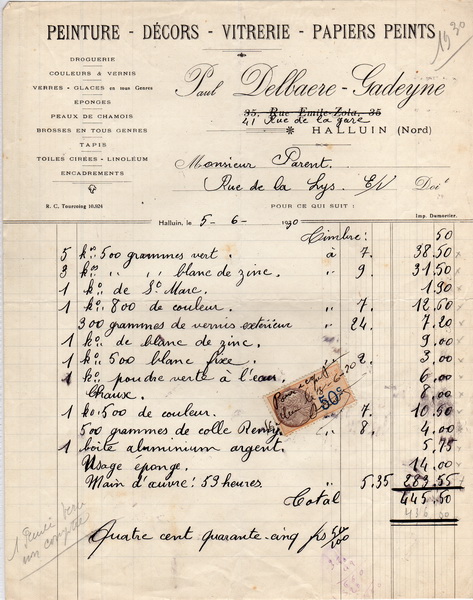 1930
PEINTURE - DÉCORS - VITRERIE - PAPIERS PEINTS
DROGUERIE
COULEURS & VERNIS
VERRES - GLACES en tous Genres
EPONGES
PEAUX DE CHAMOIS
BROSSES EN TOUS GENRES
TAPIS
TOILES CIRÉES - LINOLÉUM
ENCADREMENTS
R. C. Tourcoing 10.924
Paul Delbaere-Gadeyne
35, Rue Emile-Zola, 35
41 Rue de la gare
HALLUIN (Nord)
Monsieur Parent.
Rue de la Lys. E/V Doit
POUR CE QUI SUIT :
Imp. Dumortier.
Halluin, le 5-6-1930
Timbre: 50
5 kos 500 grammes vert. à 7. 38.50
3 kos " " blanc de zinc. " 9. 31.50
1 ko de St Marc. 1.90
1 ko 800 de couleur. " 7. 12.60
300 grammes de vernis extérieur " 24. 7.20
1 ko de blanc de zinc. 9.00
1 ko 500 blanc fixe. " 2. 3.00
1 ko poudre verte à l'eau 6.00
Chaux. 8.00
1 ko 500 de couleur. " 7. 10.50
500 grammes de colle Remy. " 8. 4.00
1 boîte aluminium argent. 5.75
Usage éponge. 14.00
Main d'œuvre: 53 heures. 5.35 283.55
Total 445.50
436.00
Pour acquit
50c
Quatre cent quarante-cinq frs 50/100